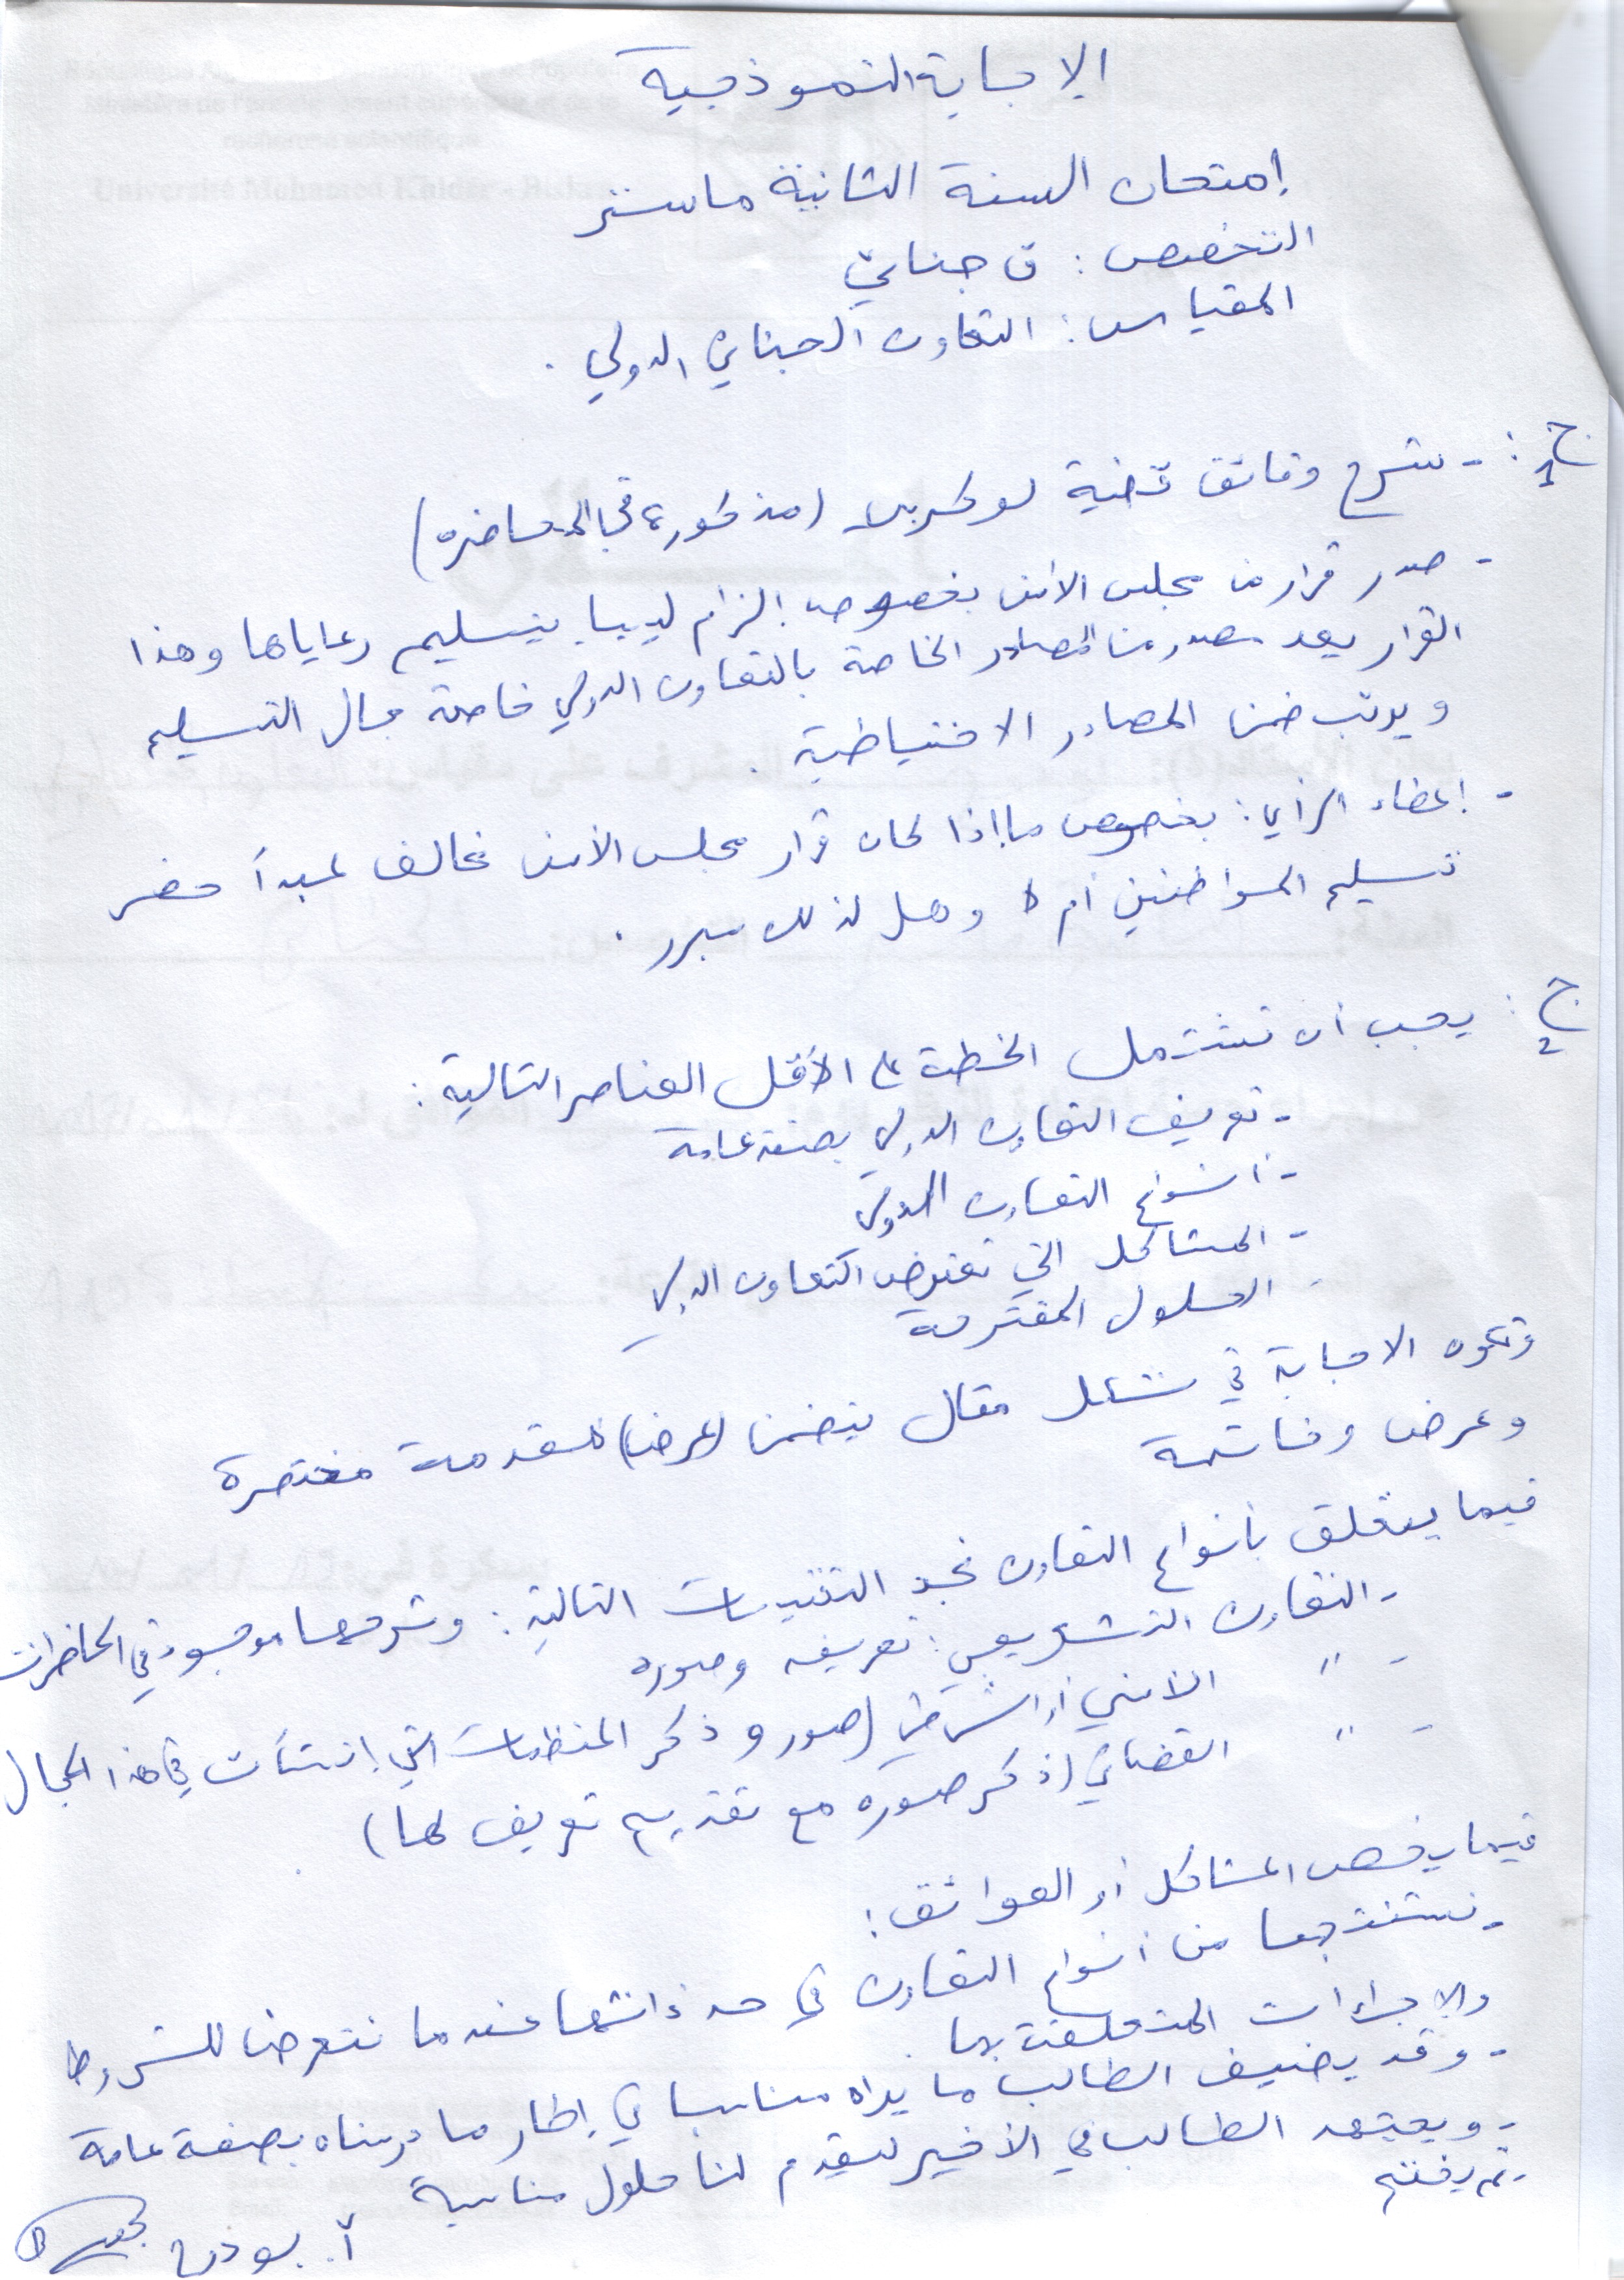 الإجابة النموذجية
إمتحان السنة الثانية ماستر
التخصص: ق جنائي
المقياس: التعاون الجنائي الدولي.
ج1: - شرح وقائق قضية لوكربي (مذكورة في المحاضرة)
- صدر قرار من مجلس الأمن بخصوص إلزام ليبيا بتسليم رعاياها وهذا
القرار يعد مصدر من المصادر الخاصة بالتعاون الدولي خاصة مجال التسليم
ويرتب ضمن المصادر الاحتياطية.
- إعطاء الرأي: بخصوص ما إذا كان قرار مجلس الأمن مخالف لمبدأ حضر
تسليم المواطنين أم لا وهل لذلك مبرر.
ج2: يجب أن تشتمل الخطة على الأقل العناصر التالية:
- تعريف التعاون الدولي بصفة عامة
- أنواع التعاون الدولي
- المشاكل التي تعترض التعاون الدولي
- الحلول المقترحة
وتكون الاجابة في شكل مقال يتضمن (عرضا) مقدمة مختصرة
وعرض وخاتمة
فيما يتعلق بأنواع التعاون نجد التقسيمات التالية: وشرحها موجود في المحاضرات
- التعاون التشريعي: تعريفه وصوره
- " الأمني أو الشرطي (صور و ذكر المنظمات التي إنشأت في هذا المجال
- " القضائي (ذكر صوره مع تقديم تعريف لها)
فيما يخص المشاكل أو العوائق:
- نستنتجها من أنواع التعاون في حد ذاتها عندما نتعرض للشروط
والإجراءات المتعلقة بها.
- وقد يضيف الطالب ما يراه مناسبا في إطار ما درسناه بصفة عامة
- ويجتهد الطالب في الأخير ليقدم لنا حلول مناسبة
أ.